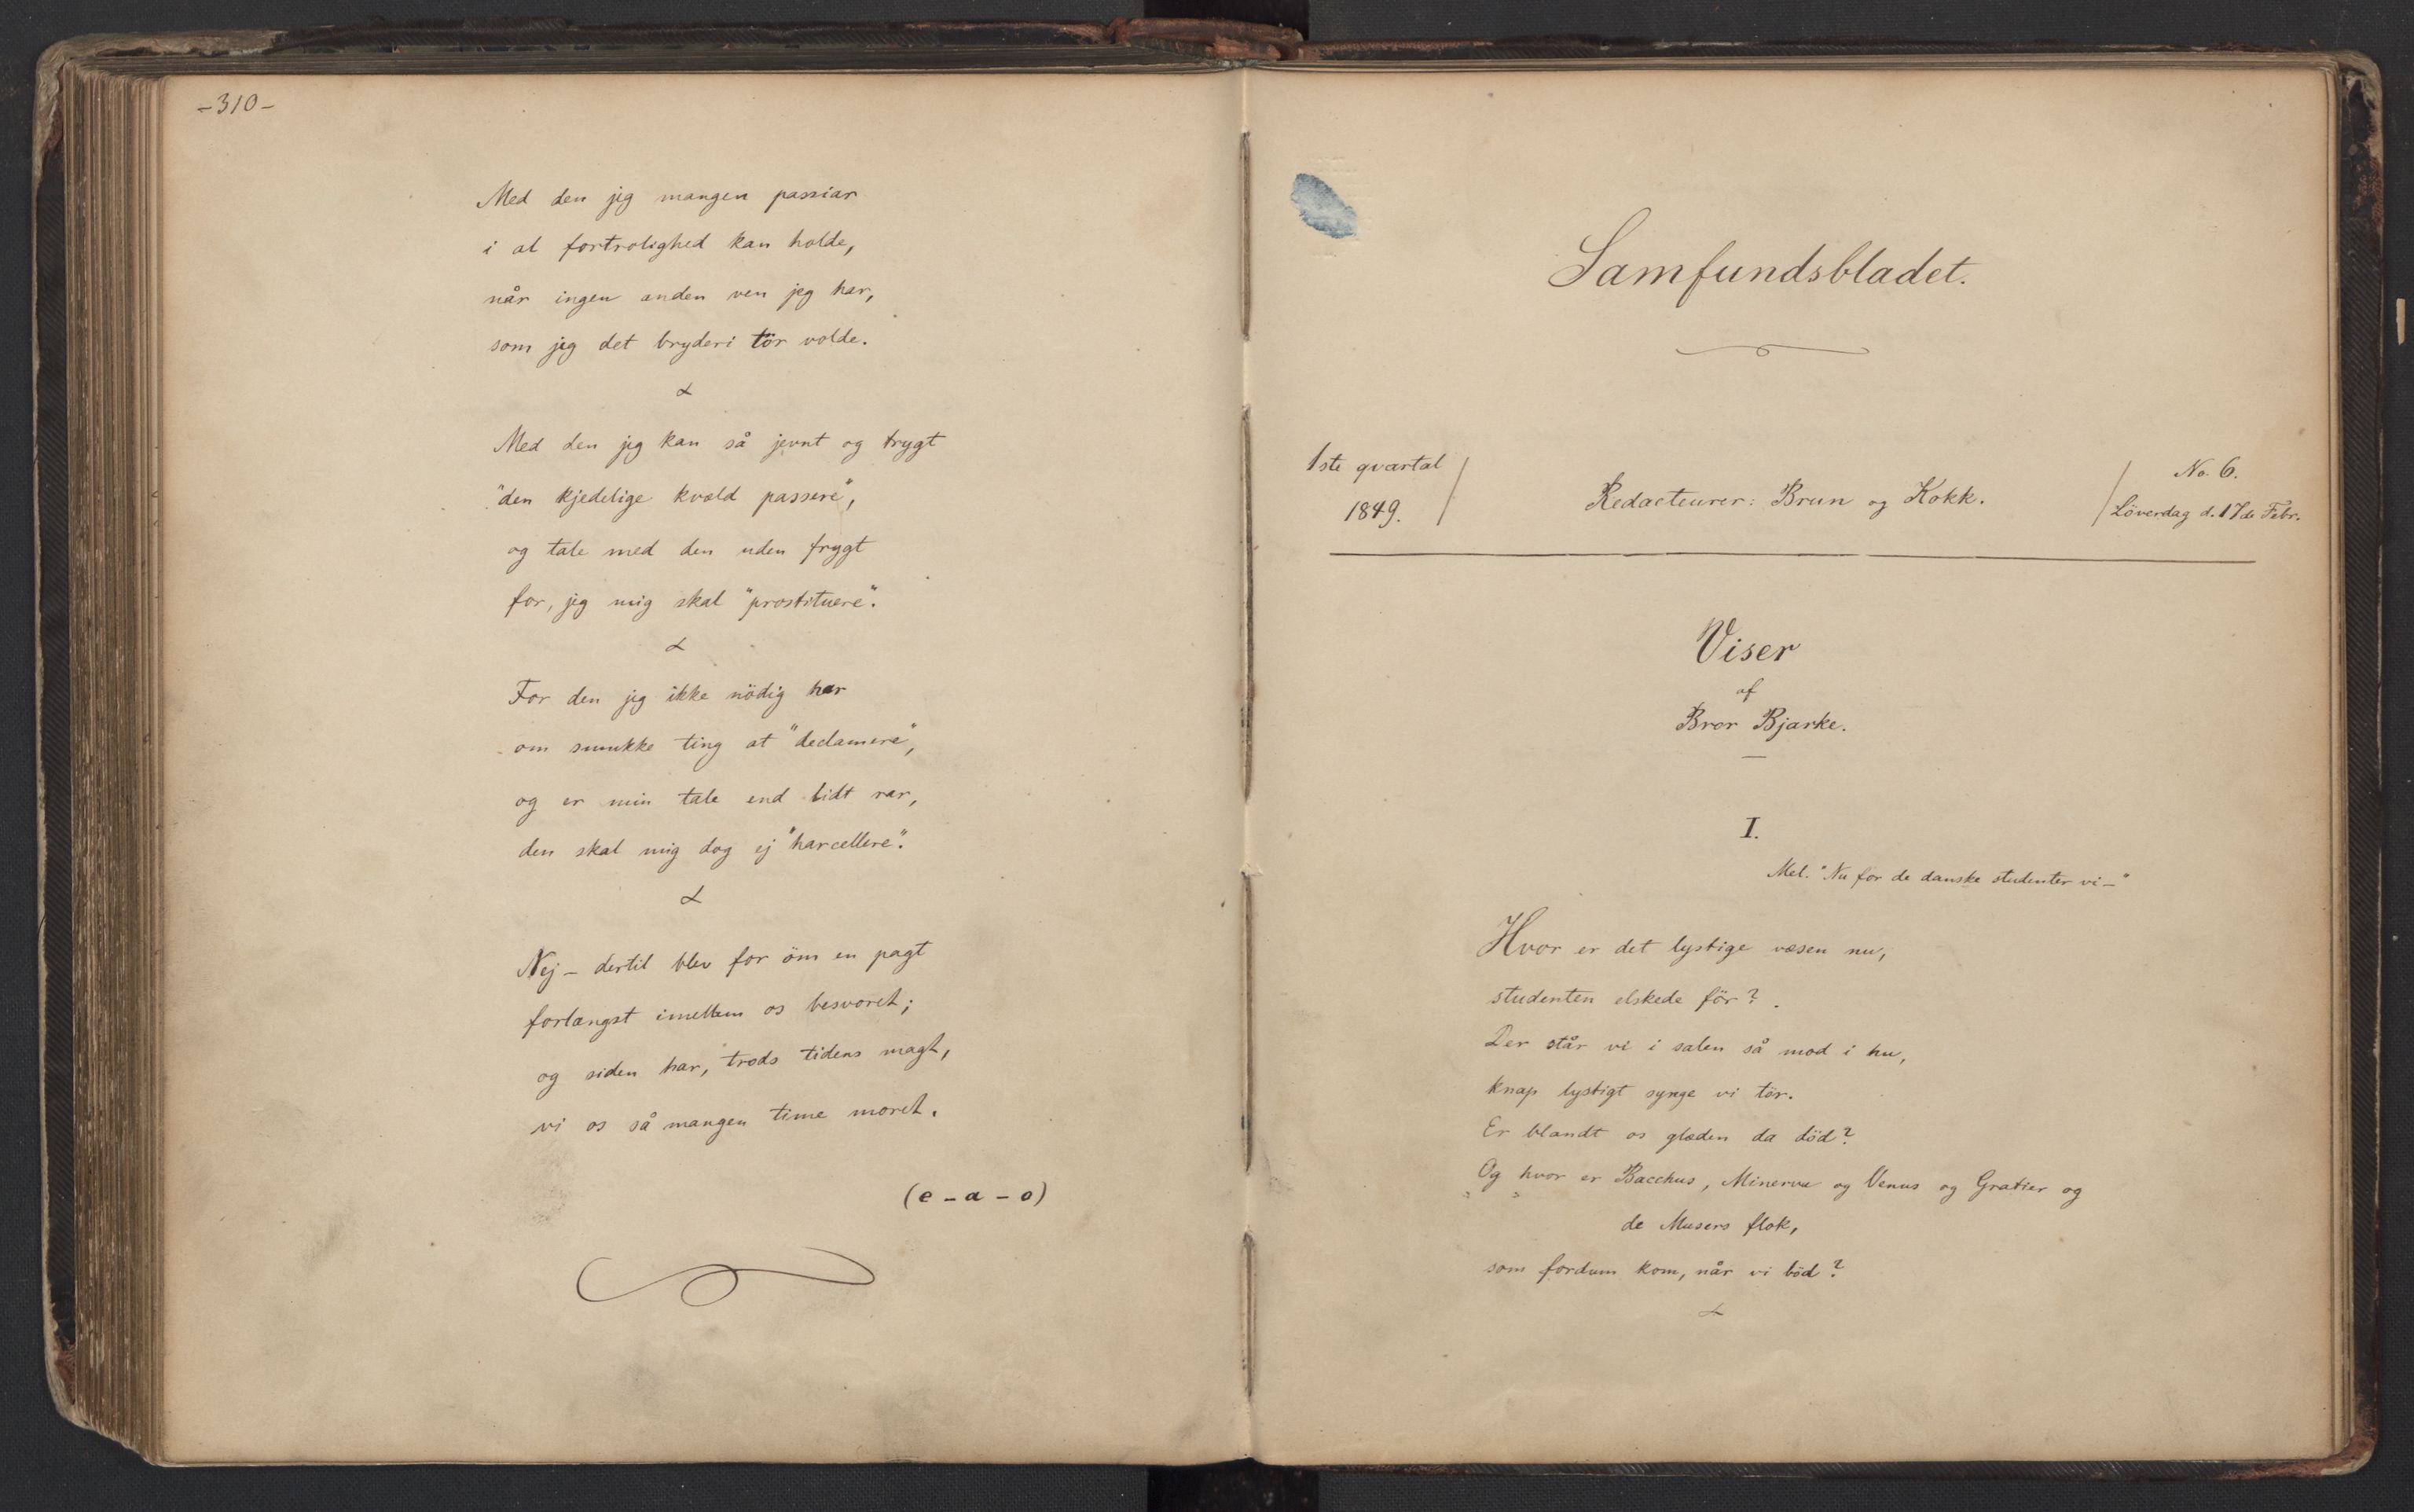 -310-
Med den jeg mangen passiar
i al fortrolighed kan holde,
når ingen anden ven jeg har,
som jeg det bryderi tör volde.
Med den jeg kan så jevnt og trygt
"den kjedelige kvæld passere",
og tale med den uden frygt
for, jeg mig skal "prostituere".
For den jeg ikke nödig har
om smukke ting at "declamere",
og er min tale end lidt rar,
den skal mig dog ej "harcellere".
Nej - dertil blev for öm en pagt
forlængst imellem os besvoret;
og siden har, trods tidens magt,
vi os så mangen time moret.
(e - a - o)
Samfundsbladet.
1ste qvartal
1849.
Redacteurer: Brun og Kokk.
No. 6.
Löverdag d. 17de Febr.
Viser
af
Bror Bjarke.
I.
Mel. "Nu før de danske studenter vi-"
Hvor er det lystige væsen nu,
studenten elskede för?
Der står vi i salen så mod i hu,
knap lystigt synge vi tör.
Er blandt os glæden da död?
Og hvor er Bacchus, Minerva og Venus og Gratier og
de Musers flok,
som fordum kom, når vi böd?